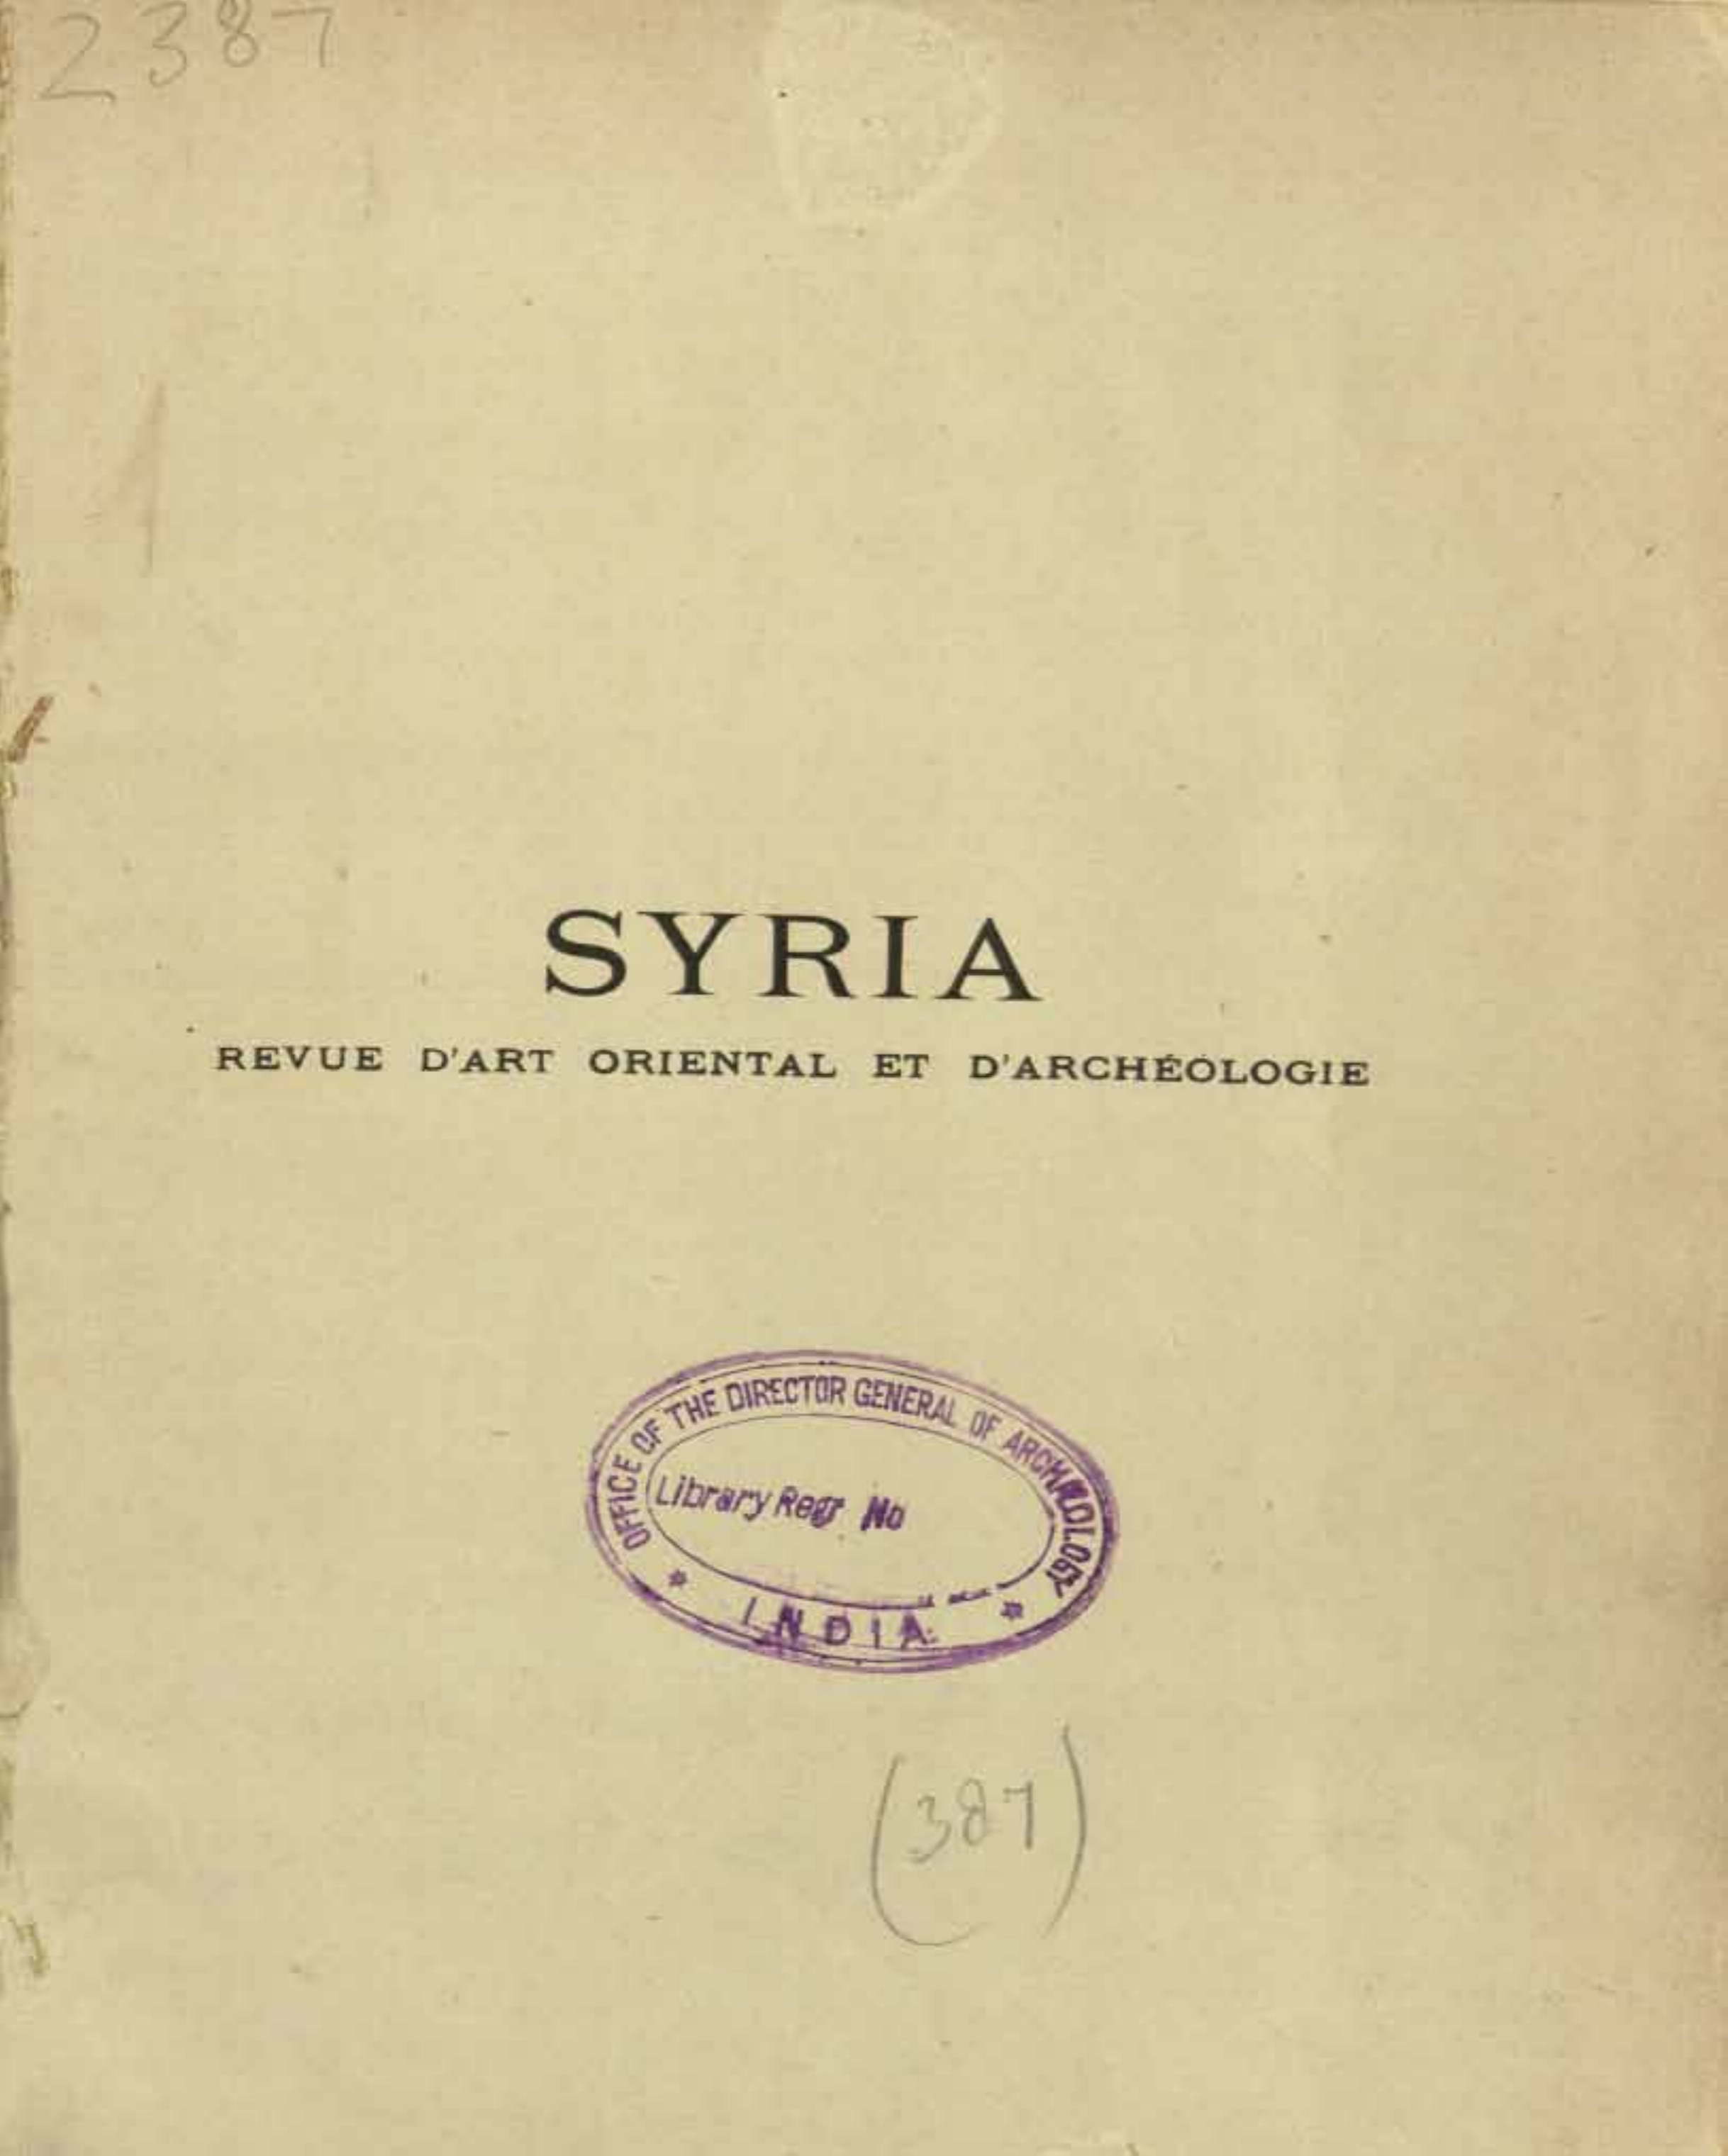 2387
SYRIA
REVUE D'ART ORIENTAL ET D'ARCHÉOLOGIE
OFFICE OF THE DIRECTOR GENERAL OF ARCHÆOLOGY
Library Regr No
* INDIA *
(387)